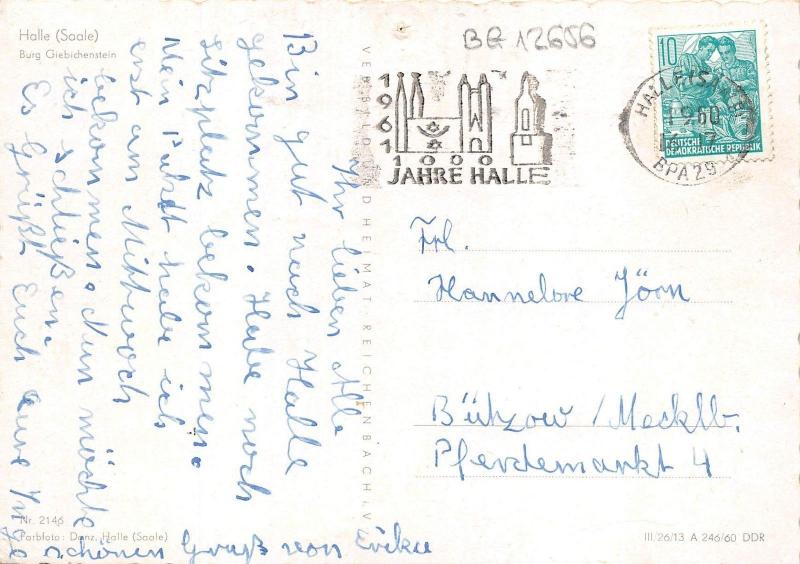 Halle (Saale)
Burg Giebichenstein
BG 12656
1961
1000
JAHRE HALLE
10
DEUTSCHE
DEMOKRATISCHE REPUBLIK
HALLE (S
9.60
BPA 29
Ihr lieben Alle
Bin gut nach Halle
gekommen. Habe noch
Sitzplatz bekommen.
Mein habe ich
erst am Mittwoch
bekommen. Nun möchte
ich schließen.
Es Grüßt Euch Eure Inge
schönen Gruß von
VERLAG BILD UND HEIMAT REICHENBACH I. V.
Frl.
Hannelore Jörn
Bützow / Mecklb.
Pferdemarkt 4
Nr. 2146
Farbfoto: Danz, Halle (Saale)
III/26/13 A 246/60 DDR